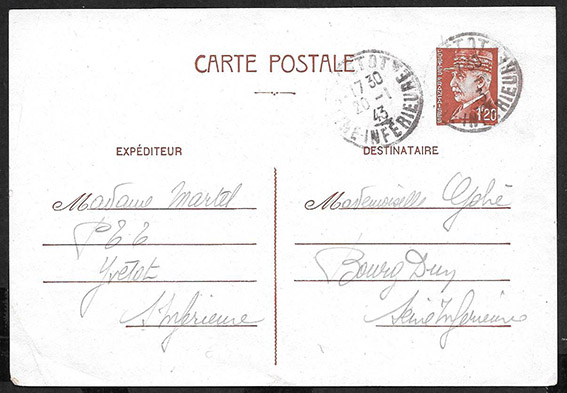 CARTE POSTALE
YVETOT
17 30
20 -1
43
SEINE INFERIEURE
POSTES FRANÇAISES
1F20
EXPÉDITEUR
Madame Martel
P E E
Yvetot
S' Inferieure
DESTINATAIRE
Mademoiselle
Bourg Dun
Seine Inferieure